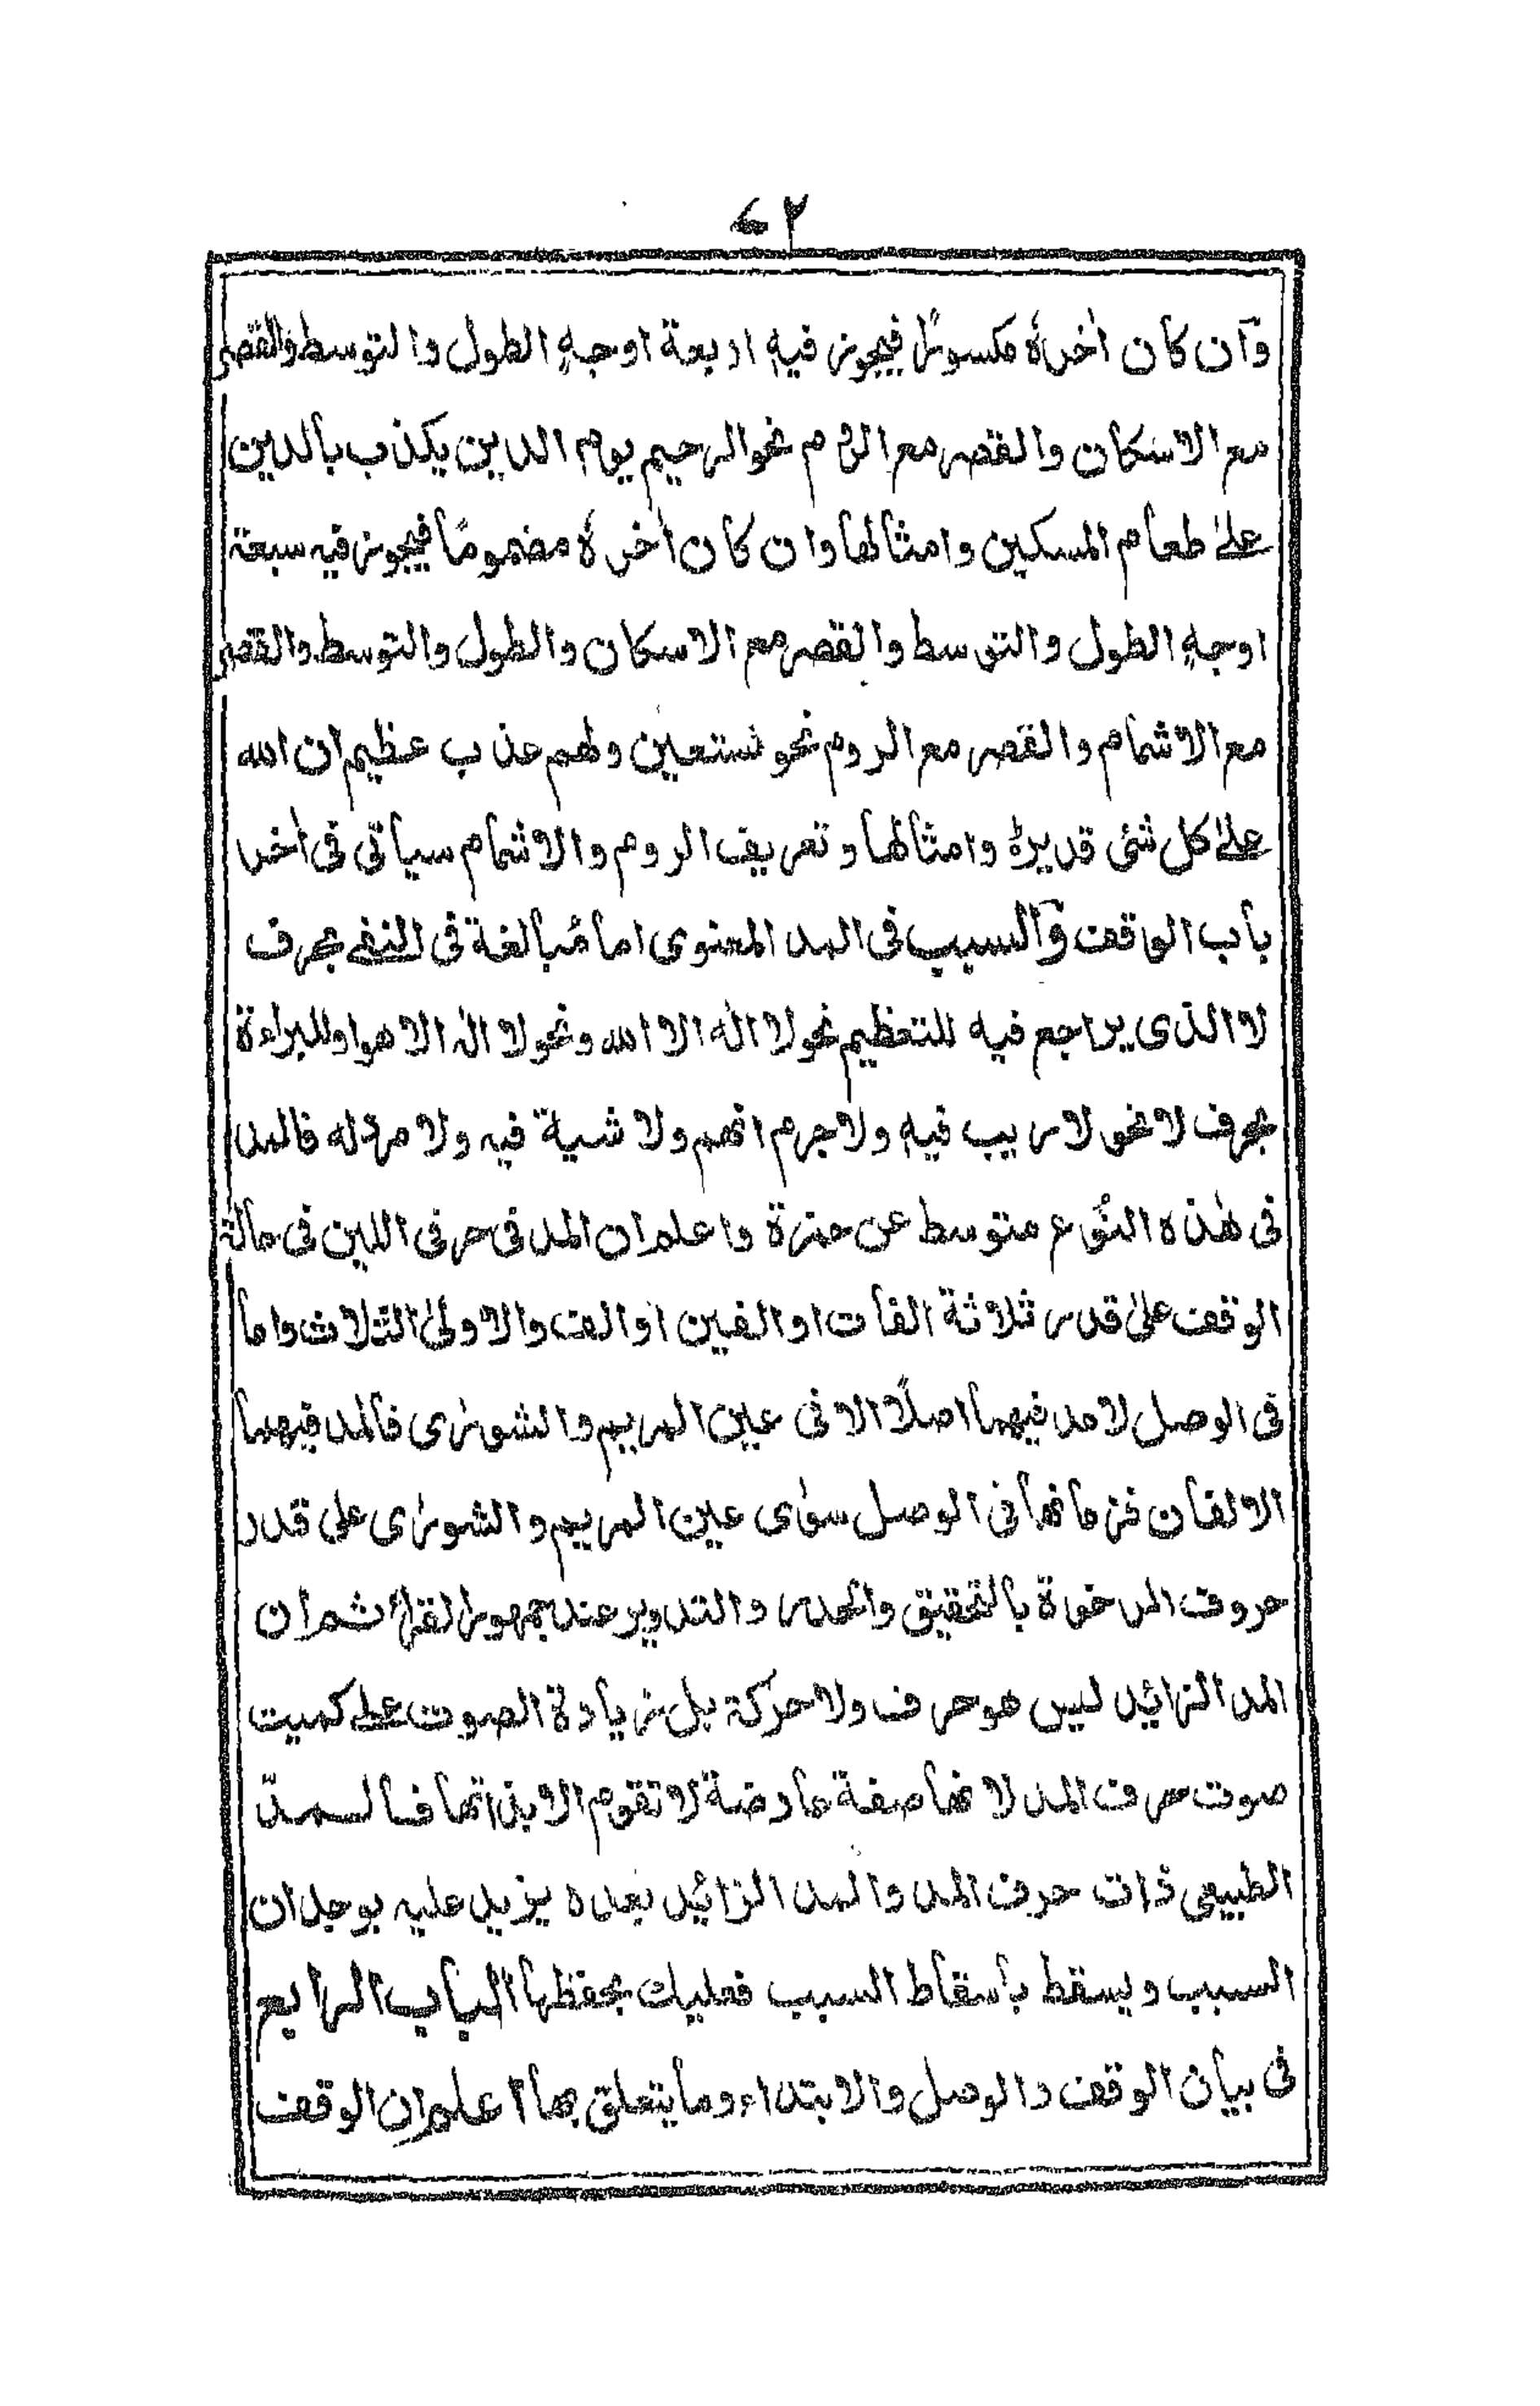 ٤٢
وآن كان اٰخرهٗ مكسورًا فيجوز فيهِ اربعة اوجهٍ الطول والتوسط والقصر
مع الاسكان والقصر مع الروم نحو الرحيم يوم الدين يكذب بالدين
علىٰ طعام المسكين وامثالها وان كان اٰخرهٗ مضمومًا فيجوز فيه سبعة
اوجهٍ الطول والتوسط والقصر مع الاسكان والطول والتوسط والقصر
مع الاشمام والقصر مع الروم نحو نستعين ولهم عذاب عظيم ان الله
علىٰ كل شئى قديرٌ وامثالها وتعريف الروم والاشمام سياتى فى اٰخر
باب الوقف وآلسبب فى المد المعنوى اما مُبالغة فى النفى بحرف
لا الذى يراجع فيه للتعظيم نحو لا اله الا الله ونحو لا اله الا هو اوللبراءة
بحرف لا نحو لا ريب فيهِ ولا جرم انهم ولا شية فيه ولا مردله فالمد
فى هٰذه النوع متوسط عن حمزة واعلم ان المد فى حرفى اللين فى حالة
الوقف علىٰ قدر ثلاثة الفات او الفين او الف والاولىٰ الثلاث واما
فى الوصل لا مد فيهما اصلًا الا فى عين المريم والشورى فالمد فيهما
الالفان فزمانها فى الوصل سوٰى عين المريم والشورٰى على قدر
حروف المدخوة بالتحقيق والحدر والتدوير عند جمهور القراء ثم ان
المد الزائد ليس هو حرف ولا حركة بل زيادة الصوت على كميت
صوت حرف المد لانها صفة عارضة لا تقوم الا بذاتها فالمدّ
الطبيعى ذات حرف المد والمد الزائد بعده يزيد عليه بوجدان
السبب ويسقط باسقاط السبب فعليك بحفظها الباب الرابع
فى بيان الوقف والوصل والابتداء وما يتعلق بها اعلم ان الوقف